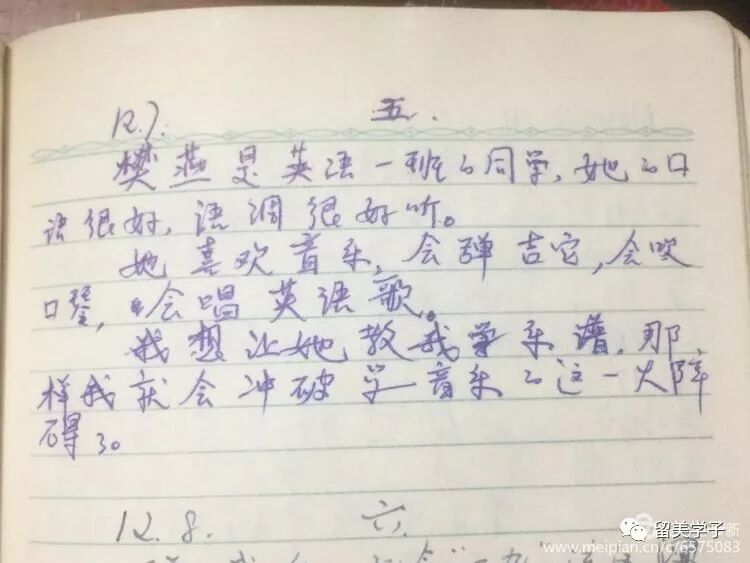 12.7. 五.
樊燕是英语一班的同学,她的口
语很好,语调很好听。
她喜欢音乐,会弹吉它,会吹
口琴,会唱英语歌。
我想让她教我学乐谱.那
样我就会冲破学音乐的这一大障
碍了。
12.8. 六.
留美学子
www.meipian.cn/c/6575083